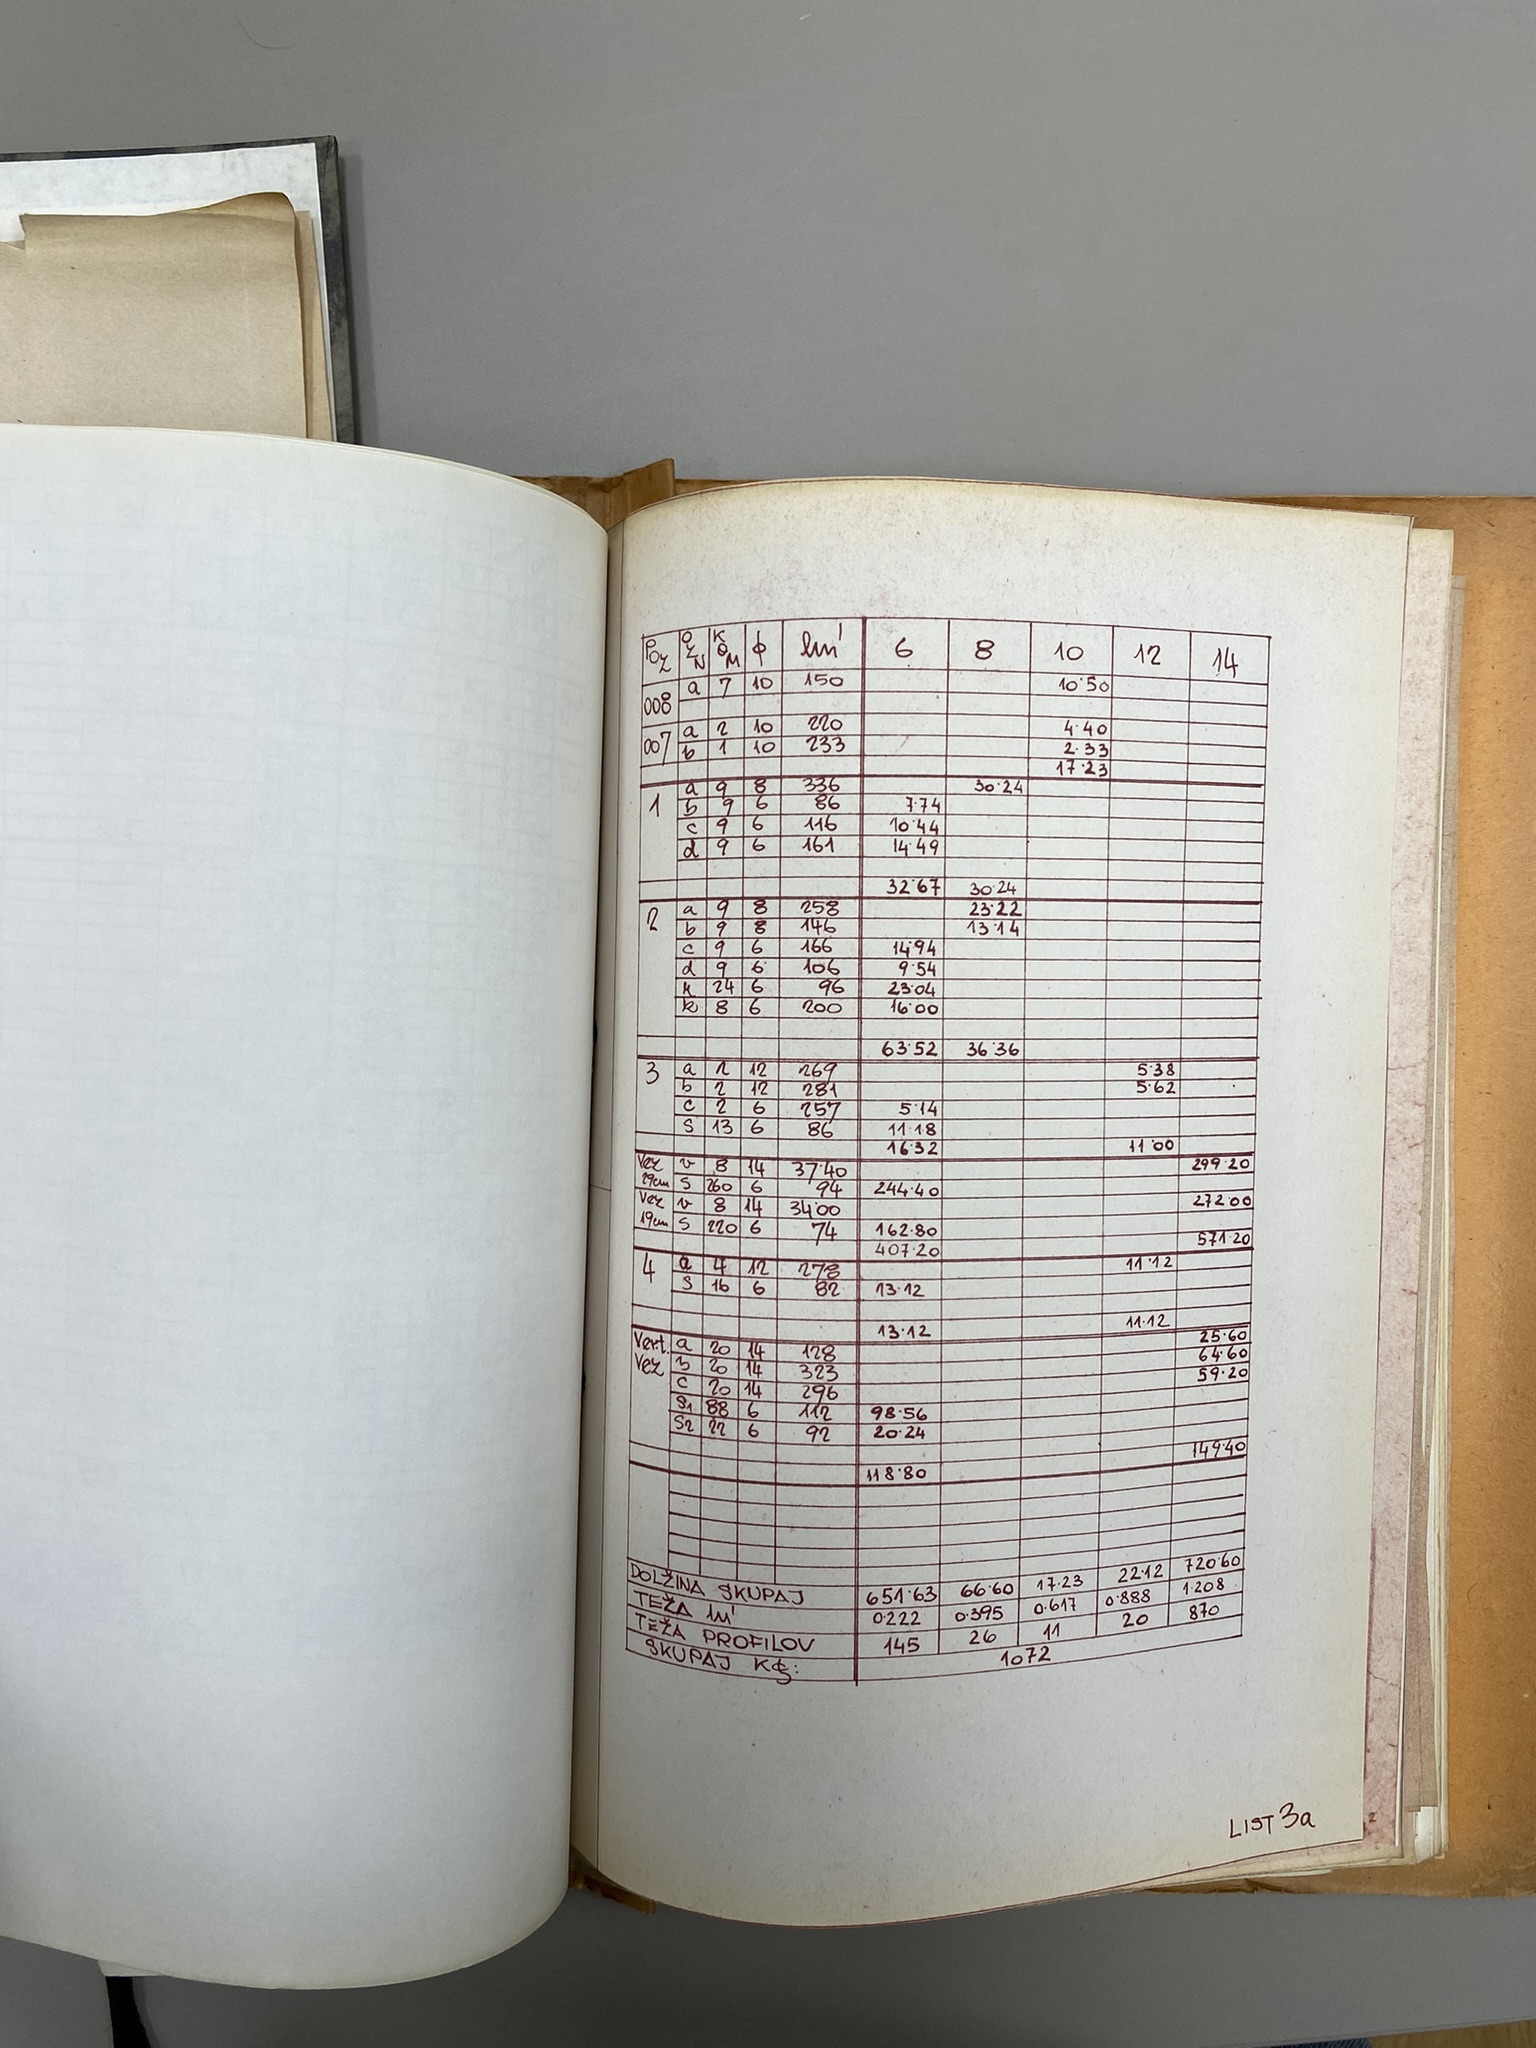 POZ OZN KOM ϕ lm' 6 8 10 12 14
008 a 7 10 150 10·50
007 a 2 10 220 4·40
b 1 10 233 2·33
17·23
1 a 9 8 336 30·24
b 9 6 86 7·74
c 9 6 116 10·44
d 9 6 161 14·49
32·67 30·24
2 a 9 8 258 23·22
b 9 8 146 13·14
c 9 6 166 14·94
d 9 6 106 9·54
24 6 96 23·04
k 8 6 200 16·00
63·52 36·36
3 a 2 12 269 5·38
b 2 12 281 5·62
c 2 6 257 5·14
S 13 6 86 11·18
16·32 11·00
Vez v 8 14 37·40 299·20
29cm S 260 6 94 244·40
Vez v 8 14 34·00 272·00
19cm S 220 6 74 162·80
407·20 571·20
4 a 4 12 278 11·12
S 16 6 82 13·12
13·12 11·12
Vert. a 20 14 128 25·60
Vez b 20 14 323 64·60
c 20 14 296 59·20
S1 88 6 112 98·56
S2 22 6 92 20·24
149·40
118·80
DOLŽINA SKUPAJ 651·63 66·60 17·23 22·12 720·60
TEŽA lm' 0·222 0·395 0·617 0·888 1·208
TEŽA PROFILOV 145 26 11 20 870
SKUPAJ KG: 1072
LIST 3a